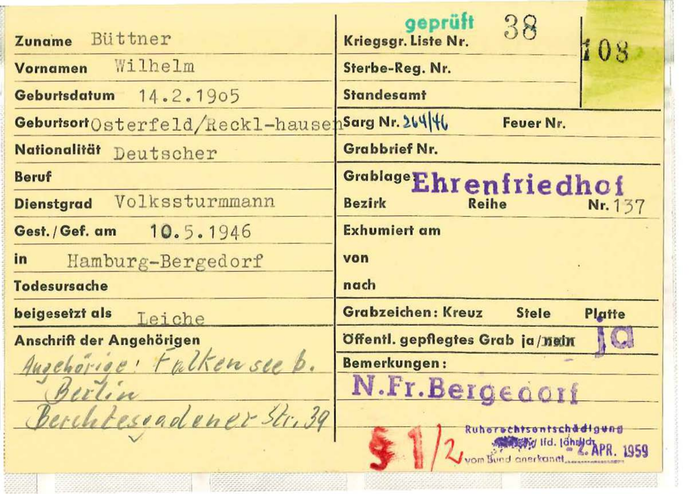 Zuname Büttner
Vornamen Wilhelm
Geburtsdatum 14.2.1905
Geburtsort Osterfeld/Reckl-hausen
Nationalität Deutscher
Beruf
Dienstgrad Volkssturmmann
Gest./Gef. am 10.5.1946
in Hamburg-Bergedorf
Todesursache
beigesetzt als Leiche
Anschrift der Angehörigen
Angehörige: Falkensee b.
Berlin
Berchtesgadener Str. 39
geprüft 38
Kriegsgr. Liste Nr.
108
Sterbe-Reg. Nr.
Standesamt
Sarg Nr. 264/46 Feuer Nr.
Grabbrief Nr.
Grablage Ehrenfriedhof
Bezirk Reihe Nr. 137
Exhumiert am
von
nach
Grabzeichen: Kreuz Stele Platte
Öffentl. gepflegtes Grab ja/nein ja
Bemerkungen:
N.Fr.Bergedorf
§ 1/2
Ruherechtsentschädigung
lfd. jährlich
vom Bund anerkannt - 2. APR. 1959